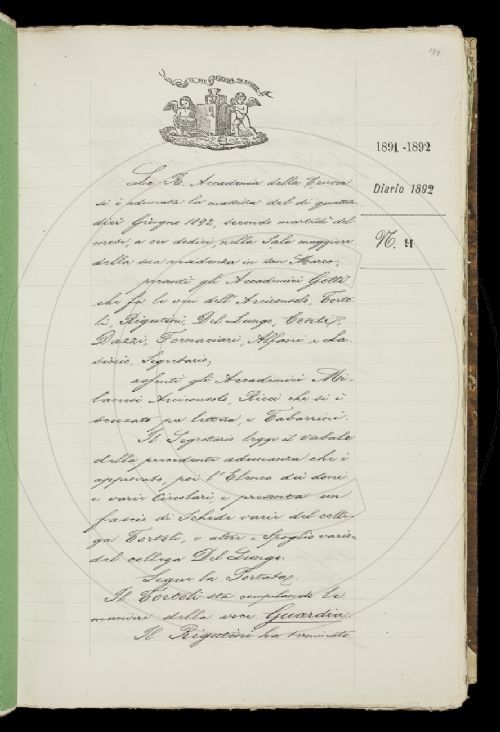 159
IL PIÙ BEL FIOR NE COGLIE
1891-1892
Diario 1892
N. 11
La R. Accademia della Crusca
si è adunata la mattina del dì quattor
dici Giugno 1892, secondo martedì del
mese, a ore dodici, nella Sala maggiore
della sua residenza in San Marco;
presenti gli Accademici Gotti
che fa le veci dell'Arciconsolo, Torto
li, Rigutini, Del Lungo, Conti,
Dazzi, Fornaciari, Alfani e
Segretario;
assenti gli Accademici Mi
lanesi Arciconsolo, Ricci che si è
scusato per lettera, e Tabarrini.
Il Segretario legge il verbale
della precedente adunanza che è
approvato, poi l'Elenco dei doni
e varie Circolari, e presenta un
fascio di Schede varie del colle
ga Tortoli, e altre e Spoglio varie
del collega Del Lungo.
Segue la Portata.
Il Tortoli sta compilando le
maniere della voce Guardia.
Il Rigutini ha terminato